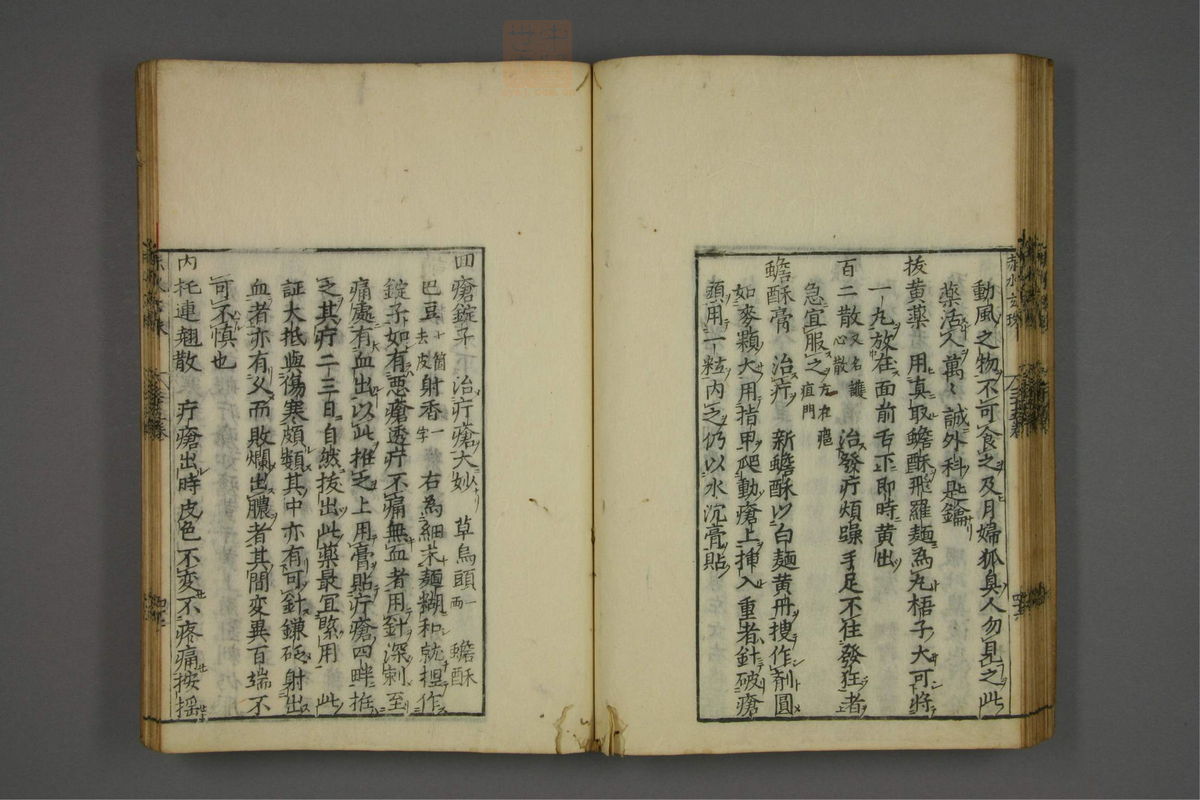 動風之物不可食之及月婦狐臭人勿見之此
藥活人萬々誠外科匙鑰
拔黄藥 用真取蟾酥飛羅麺為丸梧子大可將
一丸放在面前舌下即時黄出
百二散又名護心散 治發疔煩躁手足不住發狂者
急宜服之方在瘟疽門
蟾酥膏 治疔 新蟾酥以白麺黄丹搜作剤圓
如麥顆大用指甲爬動瘡上挿入重者針破瘡
頭用一粒内之仍以水沉膏貼
回瘡錠子 治疔瘡大妙 草烏頭一両 蟾酥
巴豆十箇去皮射香一字 右為細末麺糊和就揑作
錠子如有惡瘡透疔不痛無血者用針深刺至
痛處有血出以此推之上用膏貼疔瘡四畔推
之其疔二三日自然拔出此藥最宜緊用 此
証大抵與傷寒頗類其中亦有可針鎌砭射出
血者亦有久而敗爛出膿者其間変異百端不
可不慎也
内托連翹散 疔瘡出時皮色不変不疼痛按揺